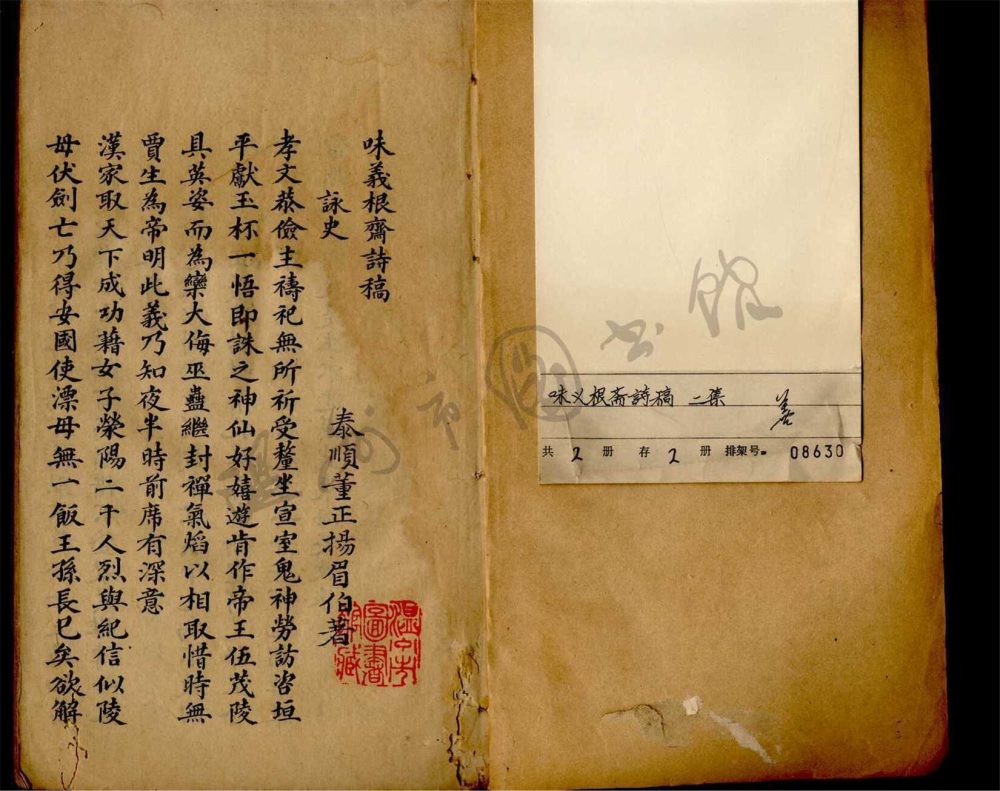 味義根齋詩稿
詠史
泰順董正揚眉伯著
孝文恭儉主禱祀無所祈受釐坐宣室鬼神勞訪咨垣
平獻玉杯一悟即誅之神仙好嬉遊肯作帝王伍茂陵
具英姿而為欒大侮巫蠱繼封禪氣焰以相取惜時無
賈生為帝明此義乃知夜半時前席有深意
漢家取天下成功藉女子榮陽二千人烈與紀信似陵
母伏劍亡乃得安國使漂母無一飯王孫長已矣欲解
溫州市
圖書
館藏
味义根斋詩稿 二集
善
共 2 册 存 2 册 排架号 08630
溫州市圖书館